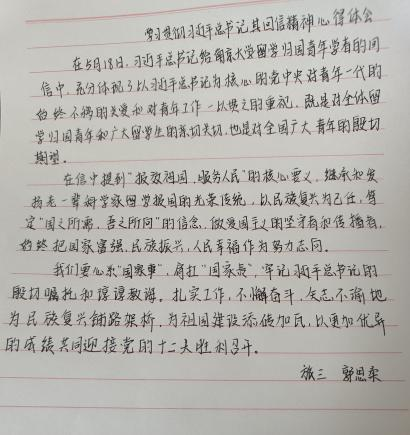 学习贯彻习近平总书记其回信精神心得体会
在5月18日,习近平总书记给南京大学留学归国青年学者的回
信中,充分体现了以习近平总书记为核心的党中央对青年一代的
始终不渝的关爱和对青年工作一以贯之的重视,既是对全体留
学归国青年和广大留学生的亲切关切,也是对全国广大青年的殷切
期望。
在信中提到“报效祖国,服务人民”的核心要义,继承和发
扬老一辈科学家留学报国的光荣传统,以民族复兴为己任,笃
定“国之所需,吾之所向”的信念,做爱国主义的坚守者和传播者,
始终把国家富强,民族振兴,人民幸福作为努力志向。
我们要心系“国家事”,肩扛“国家责”,牢记习近平总书记的
殷切嘱托和谆谆教诲。扎实工作,不懈奋斗,矢志不渝地
为民族复兴铺路架桥,为祖国建设添砖加瓦,以更加优异
的成绩共同迎接党的十二大胜利召开。
旅三 郭思柔